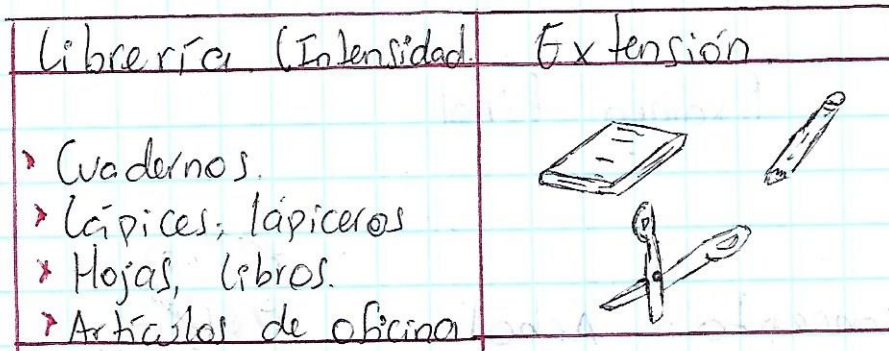 Librería (Intensidad. Extensión
› Cuadernos.
› Lápices, lápiceros
› Hojas, libros.
› Artículos de oficina